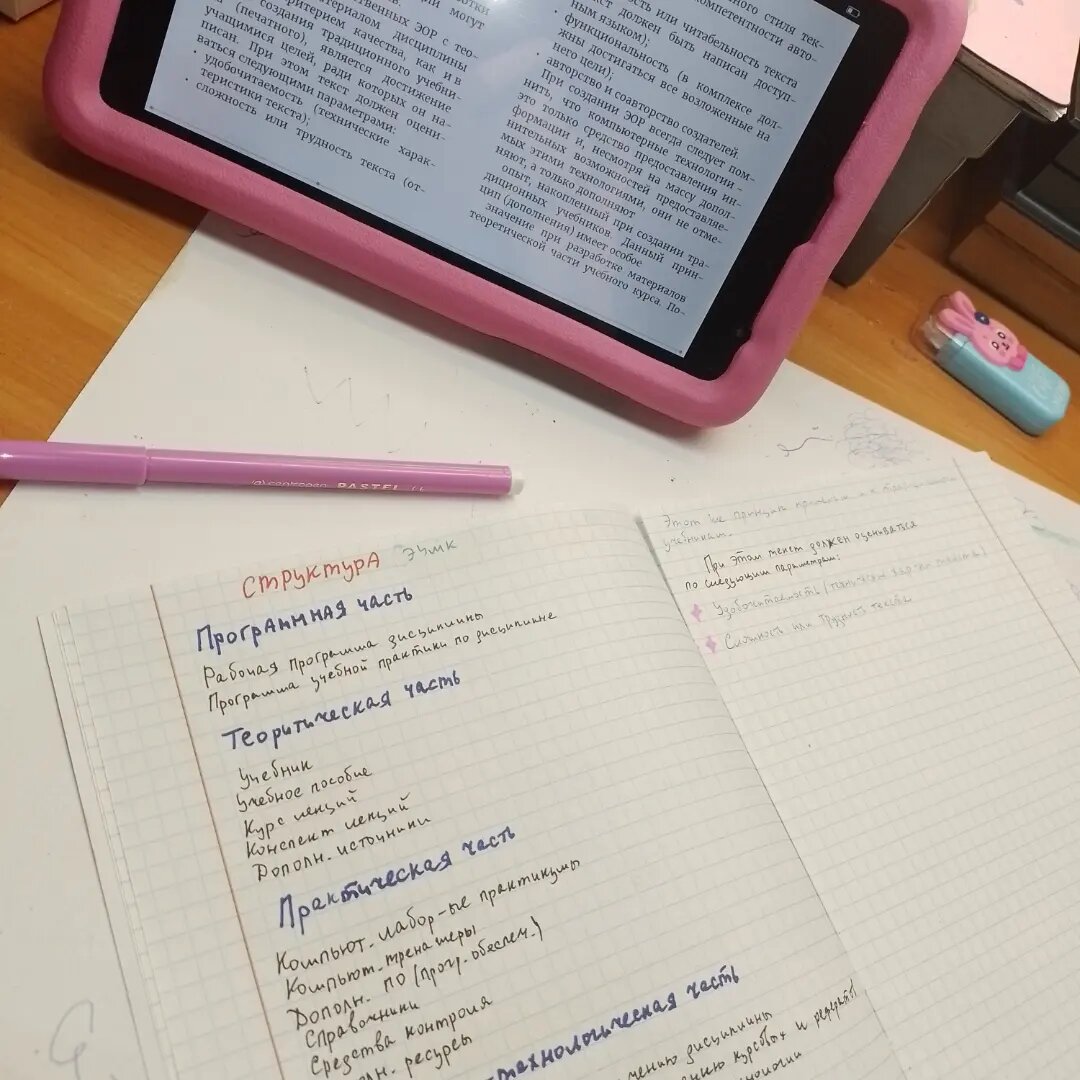 ственных ЭОР с тео-
териалом дисциплины
ритерием качества, как и в
создания традиционного учебни-
(печатного), является достижение
учащимися целей, ради которых он на-
писан. При этом текст должен оцени-
ваться следующими параметрами:
удобочитаемость (технические харак-
теристики текста);
сложность или трудность текста (от-
ного стиля тек-
компетентности авто-
сть или читабельность текста
кст должен быть написан доступ-
ным языком);
функциональность (в комплексе дол-
жны достигаться все возложенные на
него цели);
авторство и соавторство создателей.
При создании ЭОР всегда следует пом-
нить, что компьютерные технологии –
это только средство предоставления ин-
формации и, несмотря на массу допол-
нительных возможностей предоставляе-
мых этими технологиями, они не отме-
няют, а только дополняют
опыт, накопленный при создании тра-
диционных учебников. Данный прин-
цип (дополнения) имеет особое
значение при разработке материалов
теоретической части учебного курса. По-
centropen PASTEL
Структура ЭУМК
Программная часть
Рабочая программа дисциплины
Программа учебной практики по дисциплине
Теоритическая часть
Учебник
Учебное пособие
Курс лекций
Конспект лекций
Дополн. источники
Практическая часть
Компьют. лабор-ые практикумы
Компьют. тренажеры
Дополн. ПО (прогр. обеспеч.)
Справочники
Средства контроля
лн. ресурсы
технологическая часть
чению дисциплины
ению курсовых и рефераты
нологии
Этот же принцип
учебникам.
При этом текст должен оцениваться
по следующим параметрам:
Удобочитаемость (технические хар-ки текста)
Сложность или трудность текста